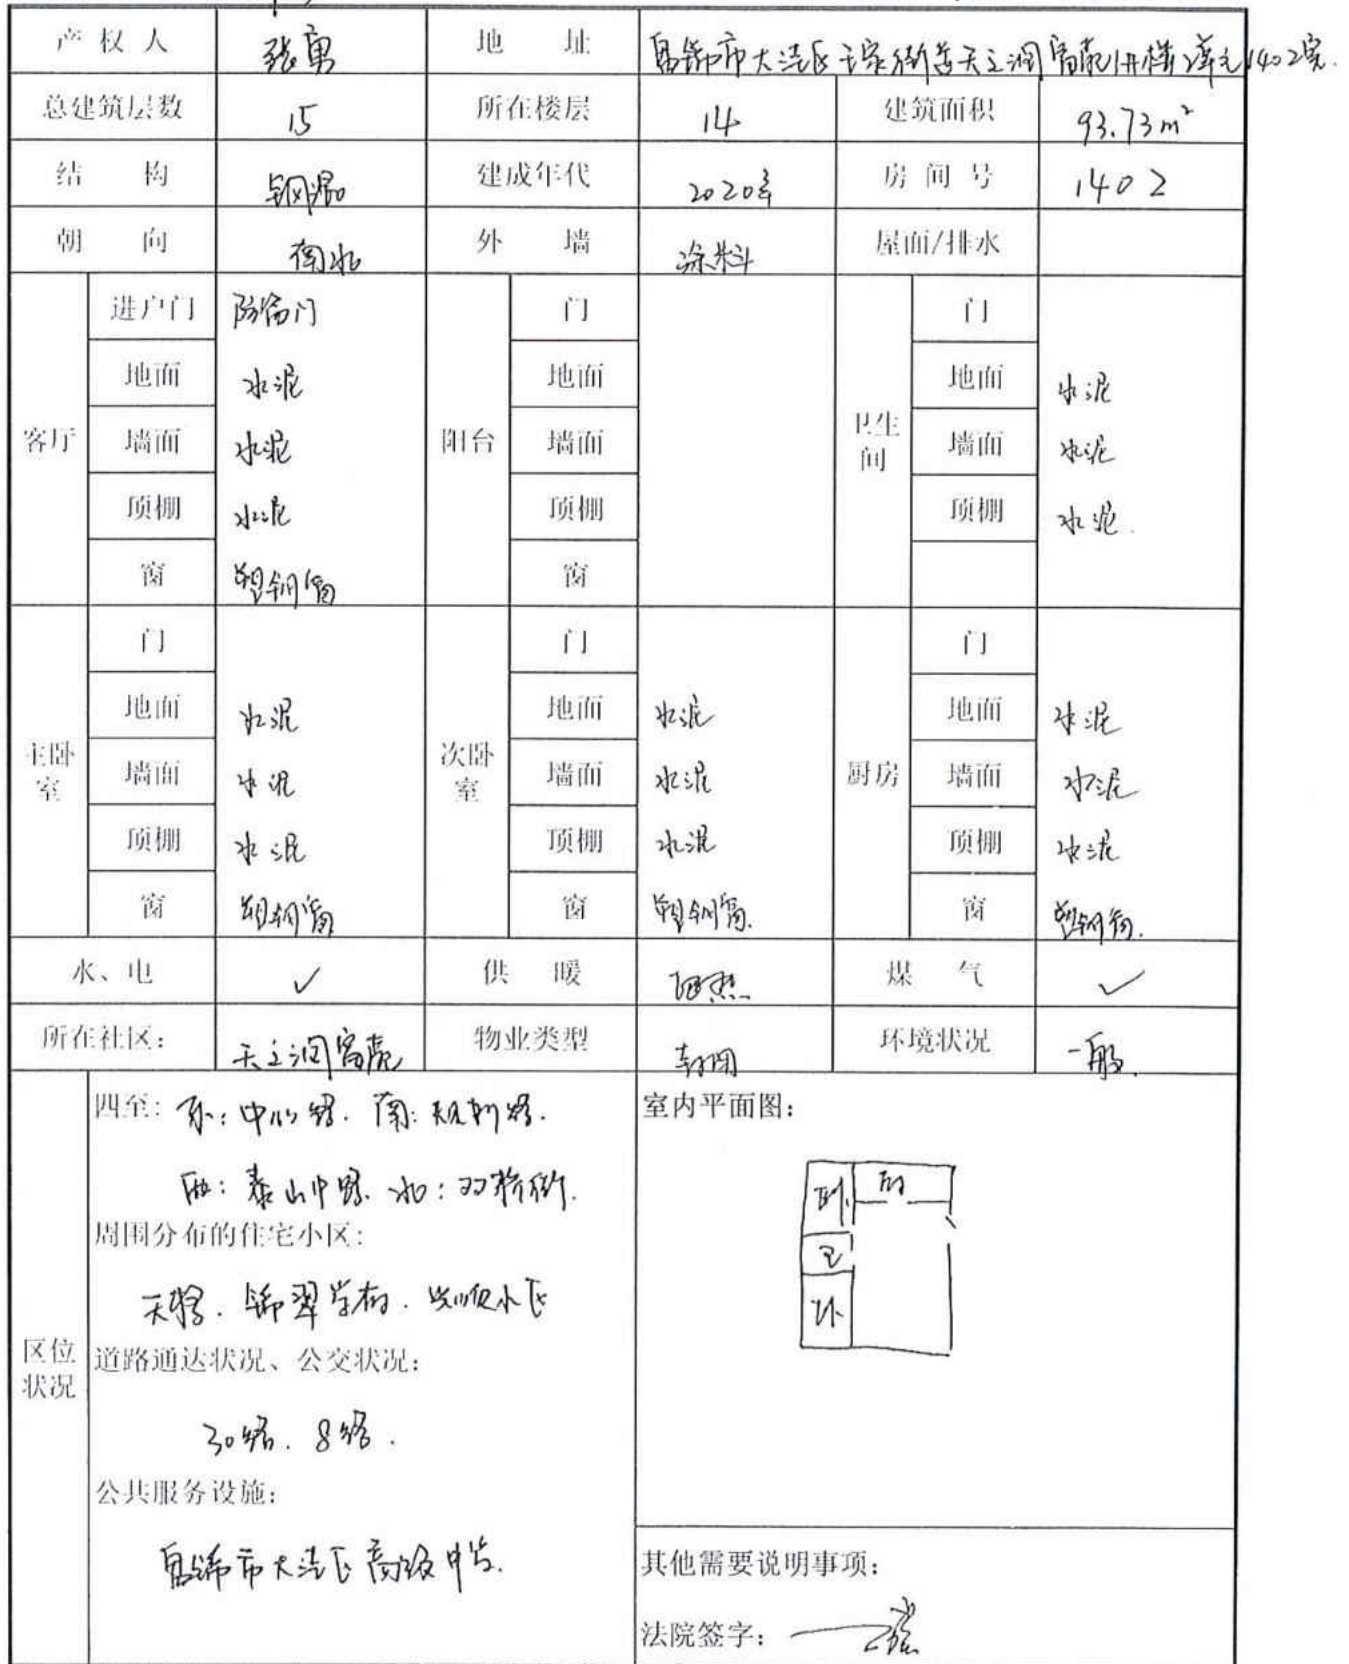 产权人 张勇 地址 盘锦市大洼区王家街道天之润富苑1#楼2单元1402室.
总建筑层数 15 所在楼层 14 建筑面积 93.73m²
结构 钢混 建成年代 2020年 房间号 1402
朝向 南北 外墙 涂料 屋面/排水
客厅 进户门 防盗门 阳台 门 卫生间 门
地面 水泥 地面 地面 水泥
墙面 水泥 墙面 墙面 水泥
顶棚 水泥 顶棚 顶棚 水泥.
窗 塑钢窗 窗
主卧室 门 次卧室 门 厨房 门
地面 水泥 地面 水泥 地面 水泥
墙面 水泥 墙面 水泥 墙面 水泥
顶棚 水泥 顶棚 水泥 顶棚 水泥
窗 塑钢窗 窗 塑钢窗. 窗 塑钢窗.
水、电 ✓ 供暖 煤气 ✓
所在社区: 天之润富苑 物业类型 封闭 环境状况 一般.
区位状况
四至: 东:中心路. 南:规划路.
西:泰山中路. 北:双桥街.
周围分布的住宅小区:
锦翠学府. 小区
道路通达状况、公交状况:
30路. 8路.
公共服务设施:
盘锦市大洼区高级中学.
室内平面图:
卧 厨
卫
卧
其他需要说明事项:
法院签字: